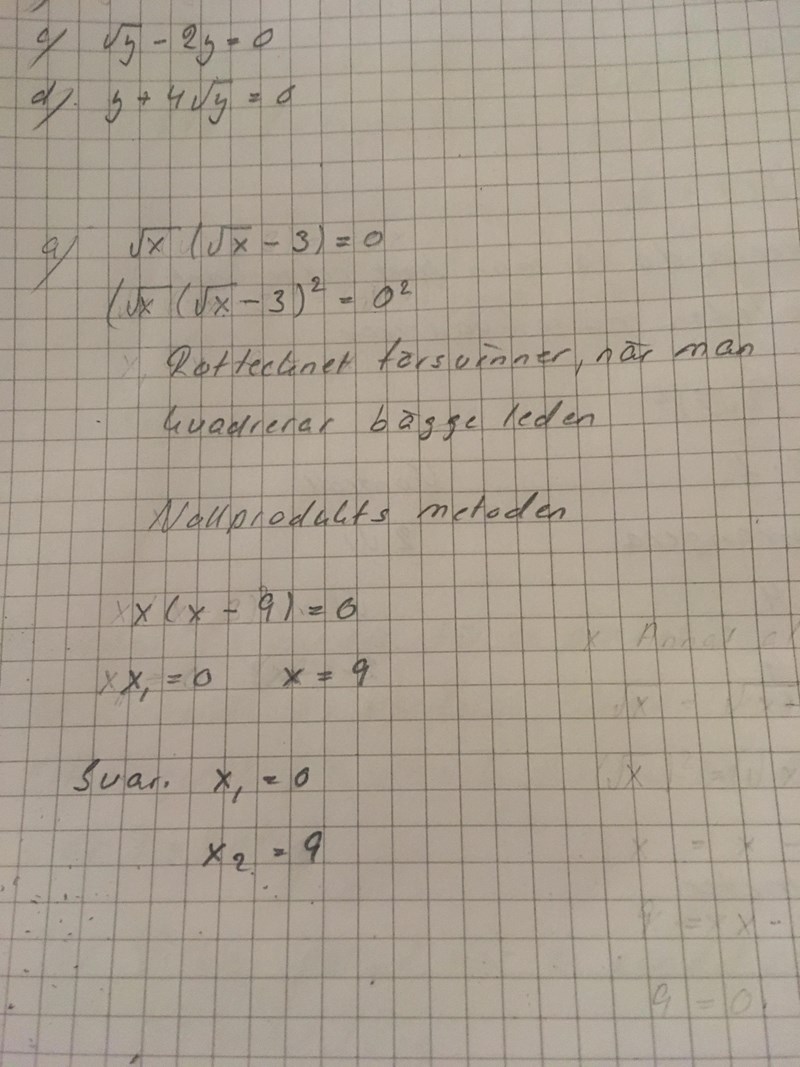 c) √y - 2y = 0
d). y + 4√y = 0
a) √x (√x - 3) = 0
(√x (√x - 3)² = 0²
Rottecknet försvinner, när man
kvadrerar bägge leden
Nollprodukts metoden
x(x - 9) = 0
x₁ = 0 x = 9
Svar. x₁ = 0
x₂ = 9